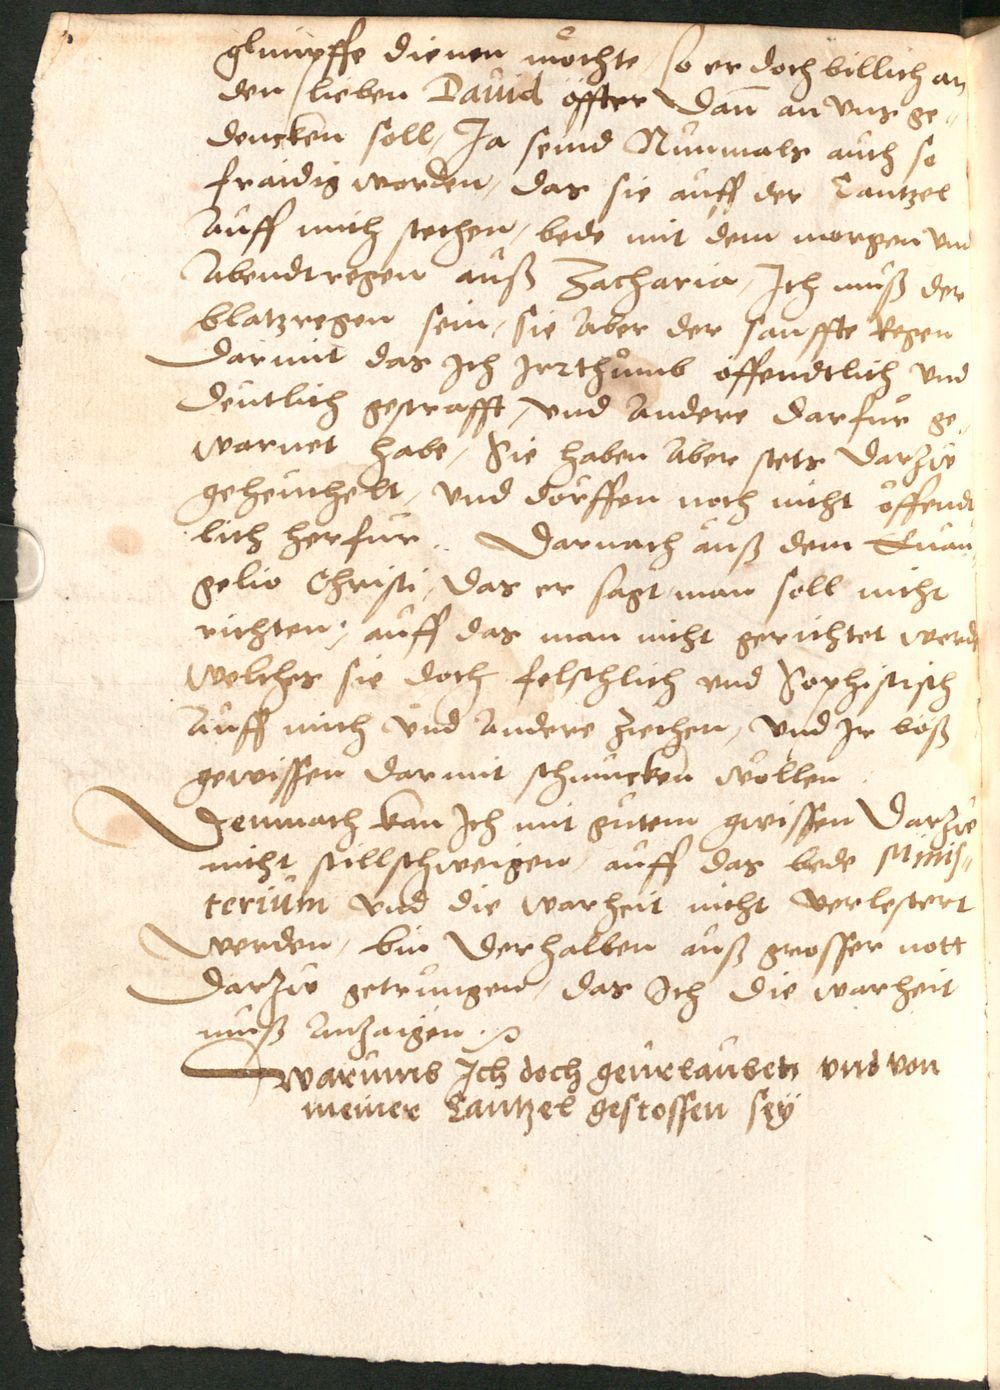 glimpffe dienen möchte, so er doch billich an
den lieben Dauid öffter Dan̄ an vns ge-
dencken soll, Ja seind Nunmals auch so
fraidig worden, das sie auff der Cantzel
Auff mich stechen, bede mit dem morgen vnd
Abendtregen auß Zacharia, Ich muß der
blatzregen sein, sie Aber der sanffte Regen
Darmit das Ich Irrthumb offendtlich vnd
Deutlich gestrafft, vnd Andere Darfur ge-
warnet habe, Sie haben Aber stets Darzu
geheuchelt, vnd dorffen noch nicht offendt
lich herfur. Darnach auß dem Euan
gelio Christi, Das er sagt man soll nicht
richten, auff das man nicht gerichtet werde
Welches sie doch felschlich vnd Sophistisch
Auff mich vnd Andere ziechen, vnd Ir böß
gewissen darmit schmucken wöllen.
Demnach kan Ich mit gutem gwissen Darzu
nicht stillschweigen, auff das bede Minis-
terium vnd die warheit nicht verlestert
werden, bin Derhalben auß grosser nott
Darzu getrungen, das Ich die warheit
muß Anzaigen.
Warumb Ich doch geurlaubet vnd von
meiner Cantzel gestossen seÿ